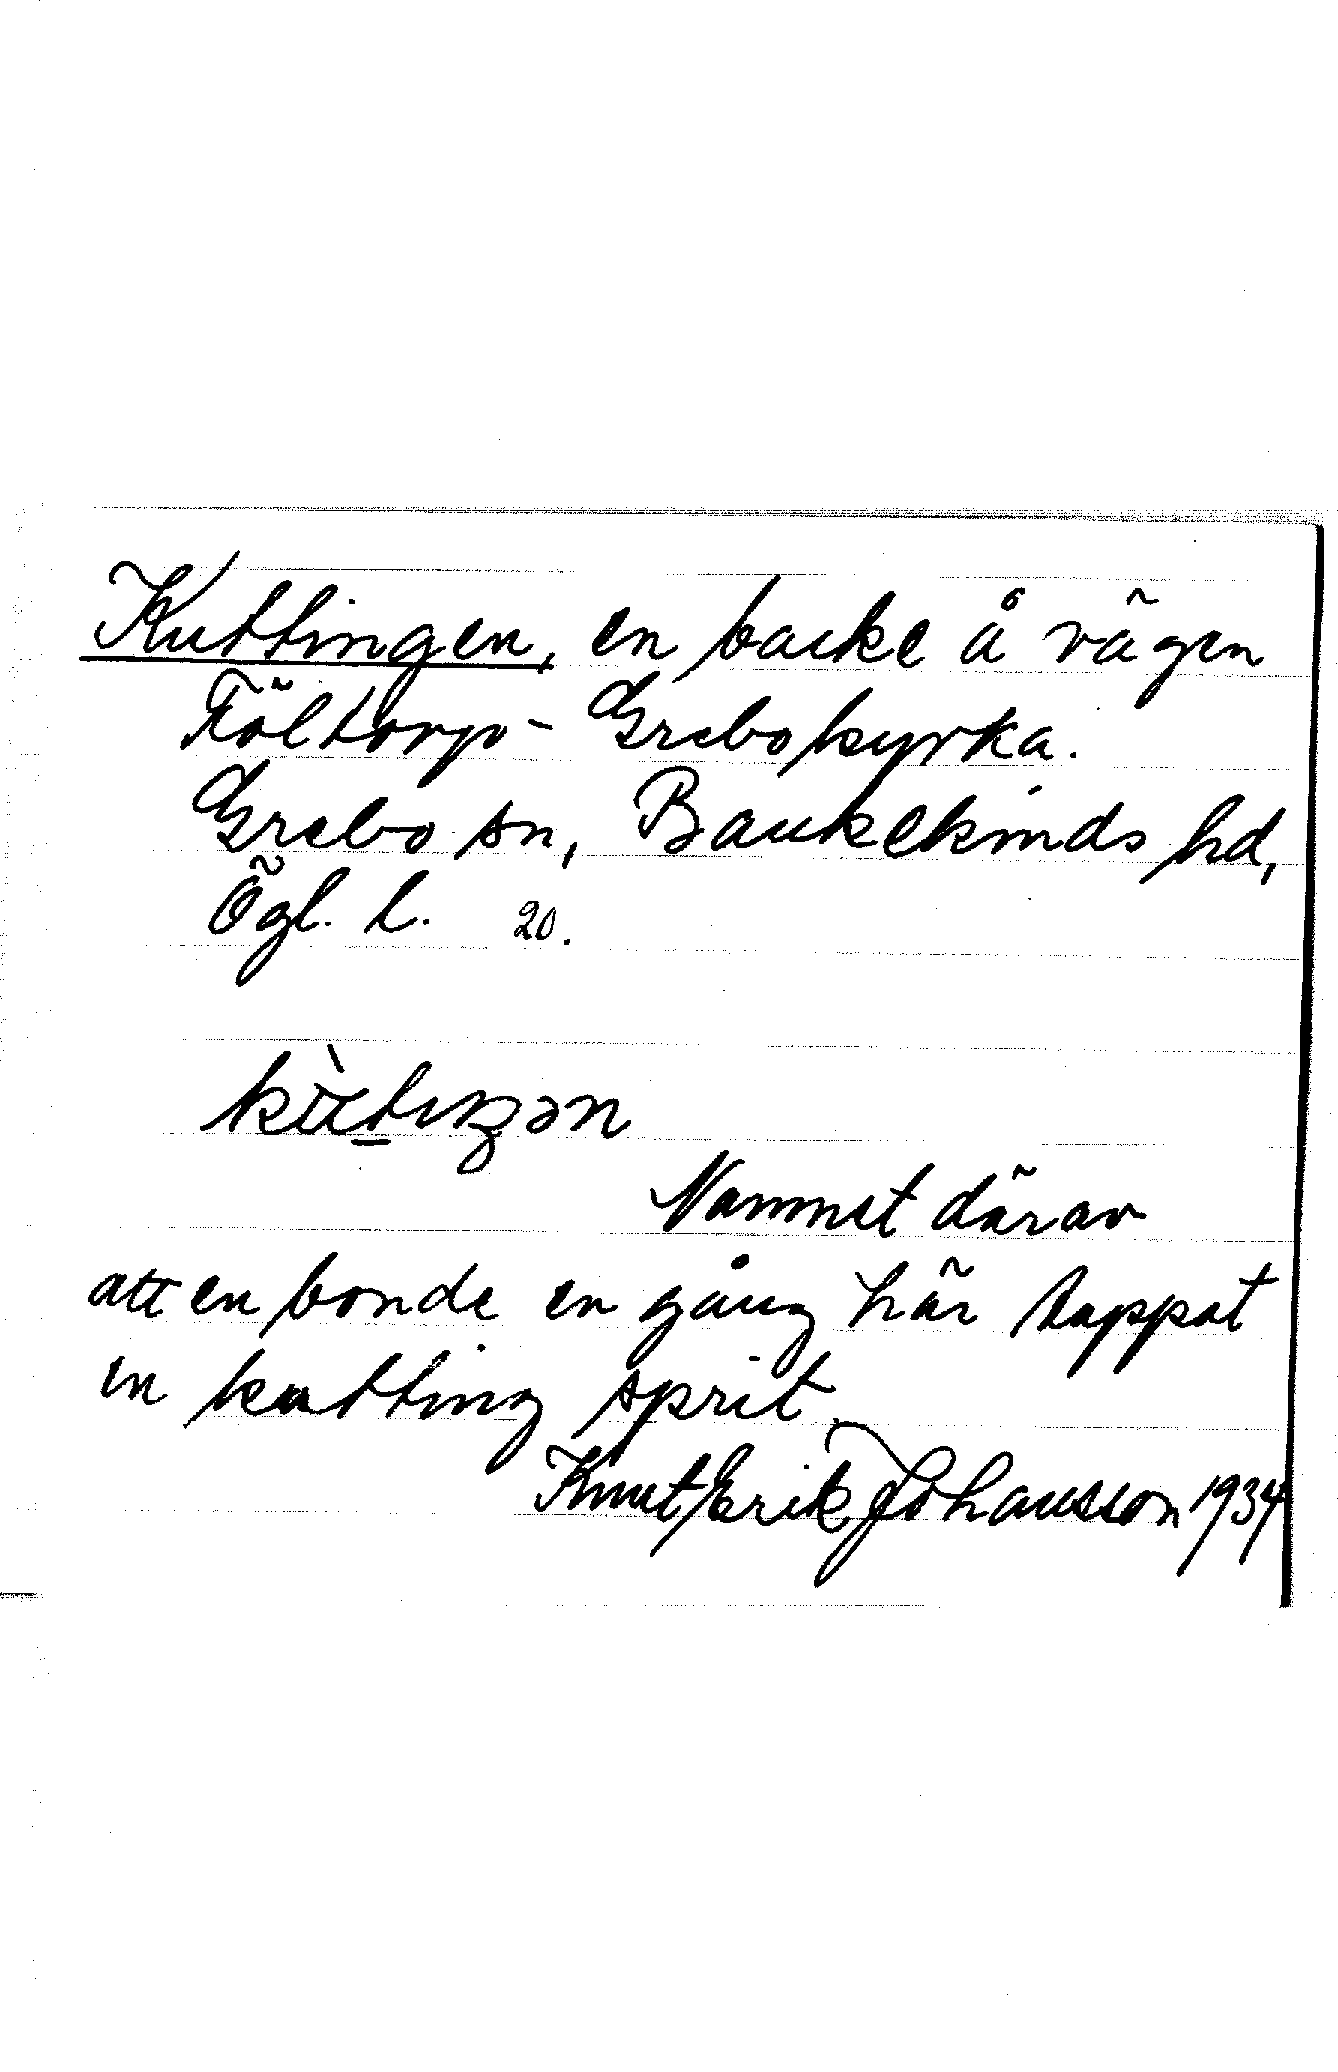 Kuttingen, en backe å vägen
Föltorp - Grebo kyrka.
Grebo sn, Bankekinds hd,
Ögl. l. 20.
Namnet därav
att en bonde en gång här tappat
en kutting sprit.
Knut Erik Johansson 1934